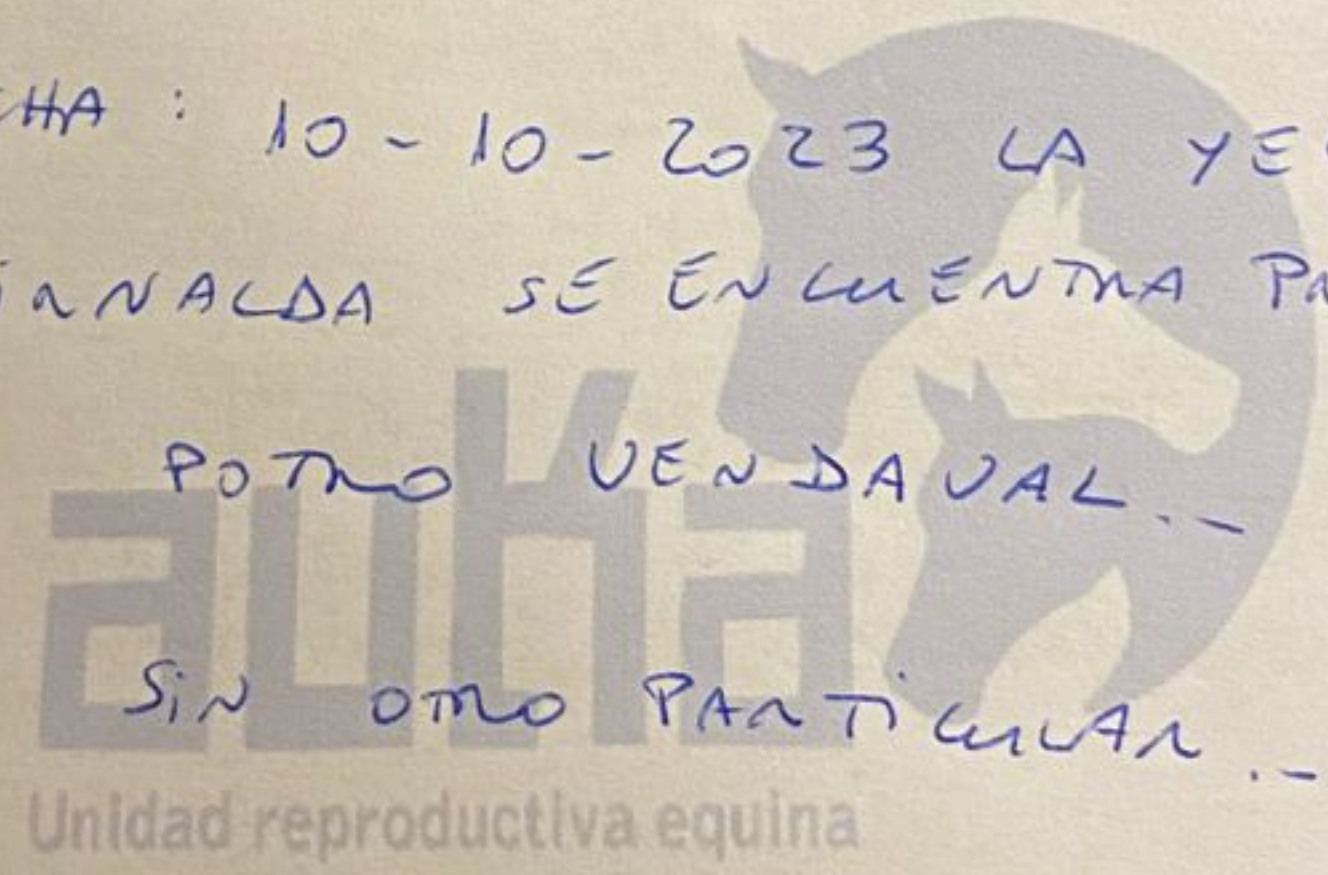 CHA : 10-10-2023 LA YE
IRNALDA SE ENCUENTRA PR
POTRO VENDAVAL.-
SIN OTRO PARTICULAR.-
auka
Unidad reproductiva equina